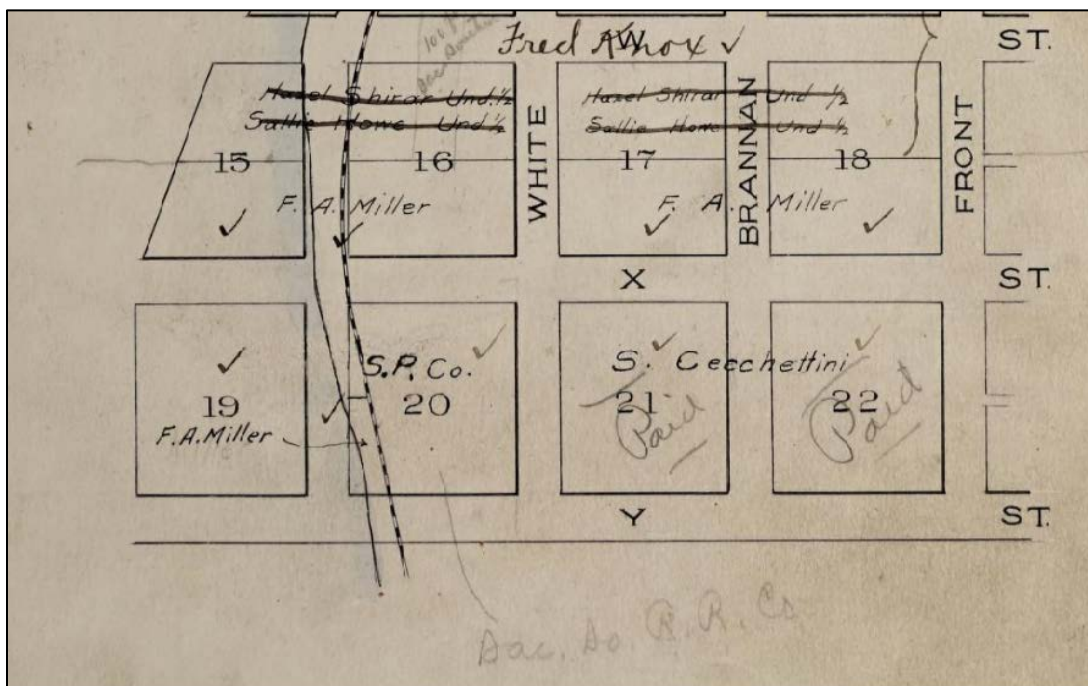 Fred A Knox ✓
W ST.
Hazel Shirar Und. ½
Sallie Howe Und ½
Hazel Shirar Und ½
Sallie Howe Und ½
WHITE
BRANNAN
FRONT
15 16 17 18
F. A. Miller
F. A. Miller
X ST.
S.P. Co.
S. Cecchettini
19 20 21 22
Paid Paid
F.A. Miller
Y ST.
Sac. So. R. R. Co